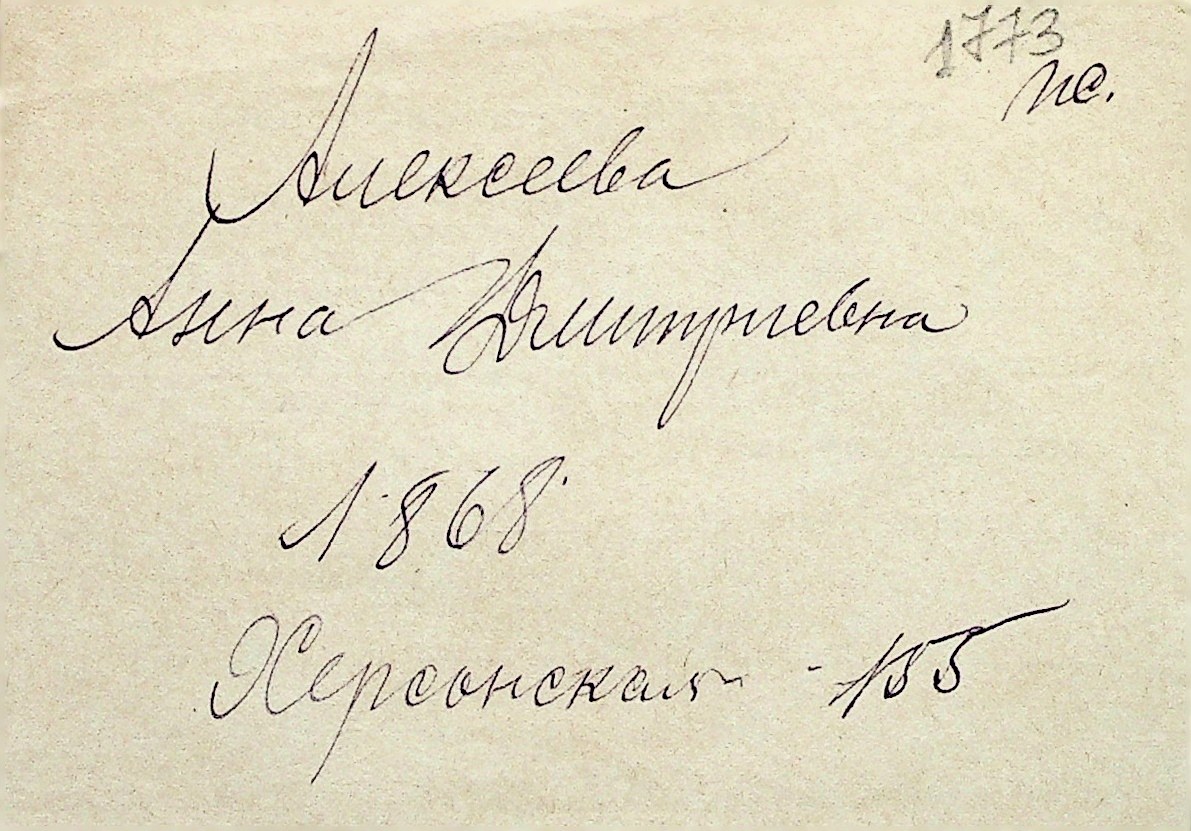 1773
пс.
Алексеева
Анна Дмитриевна
1868.
Херсонская - 155